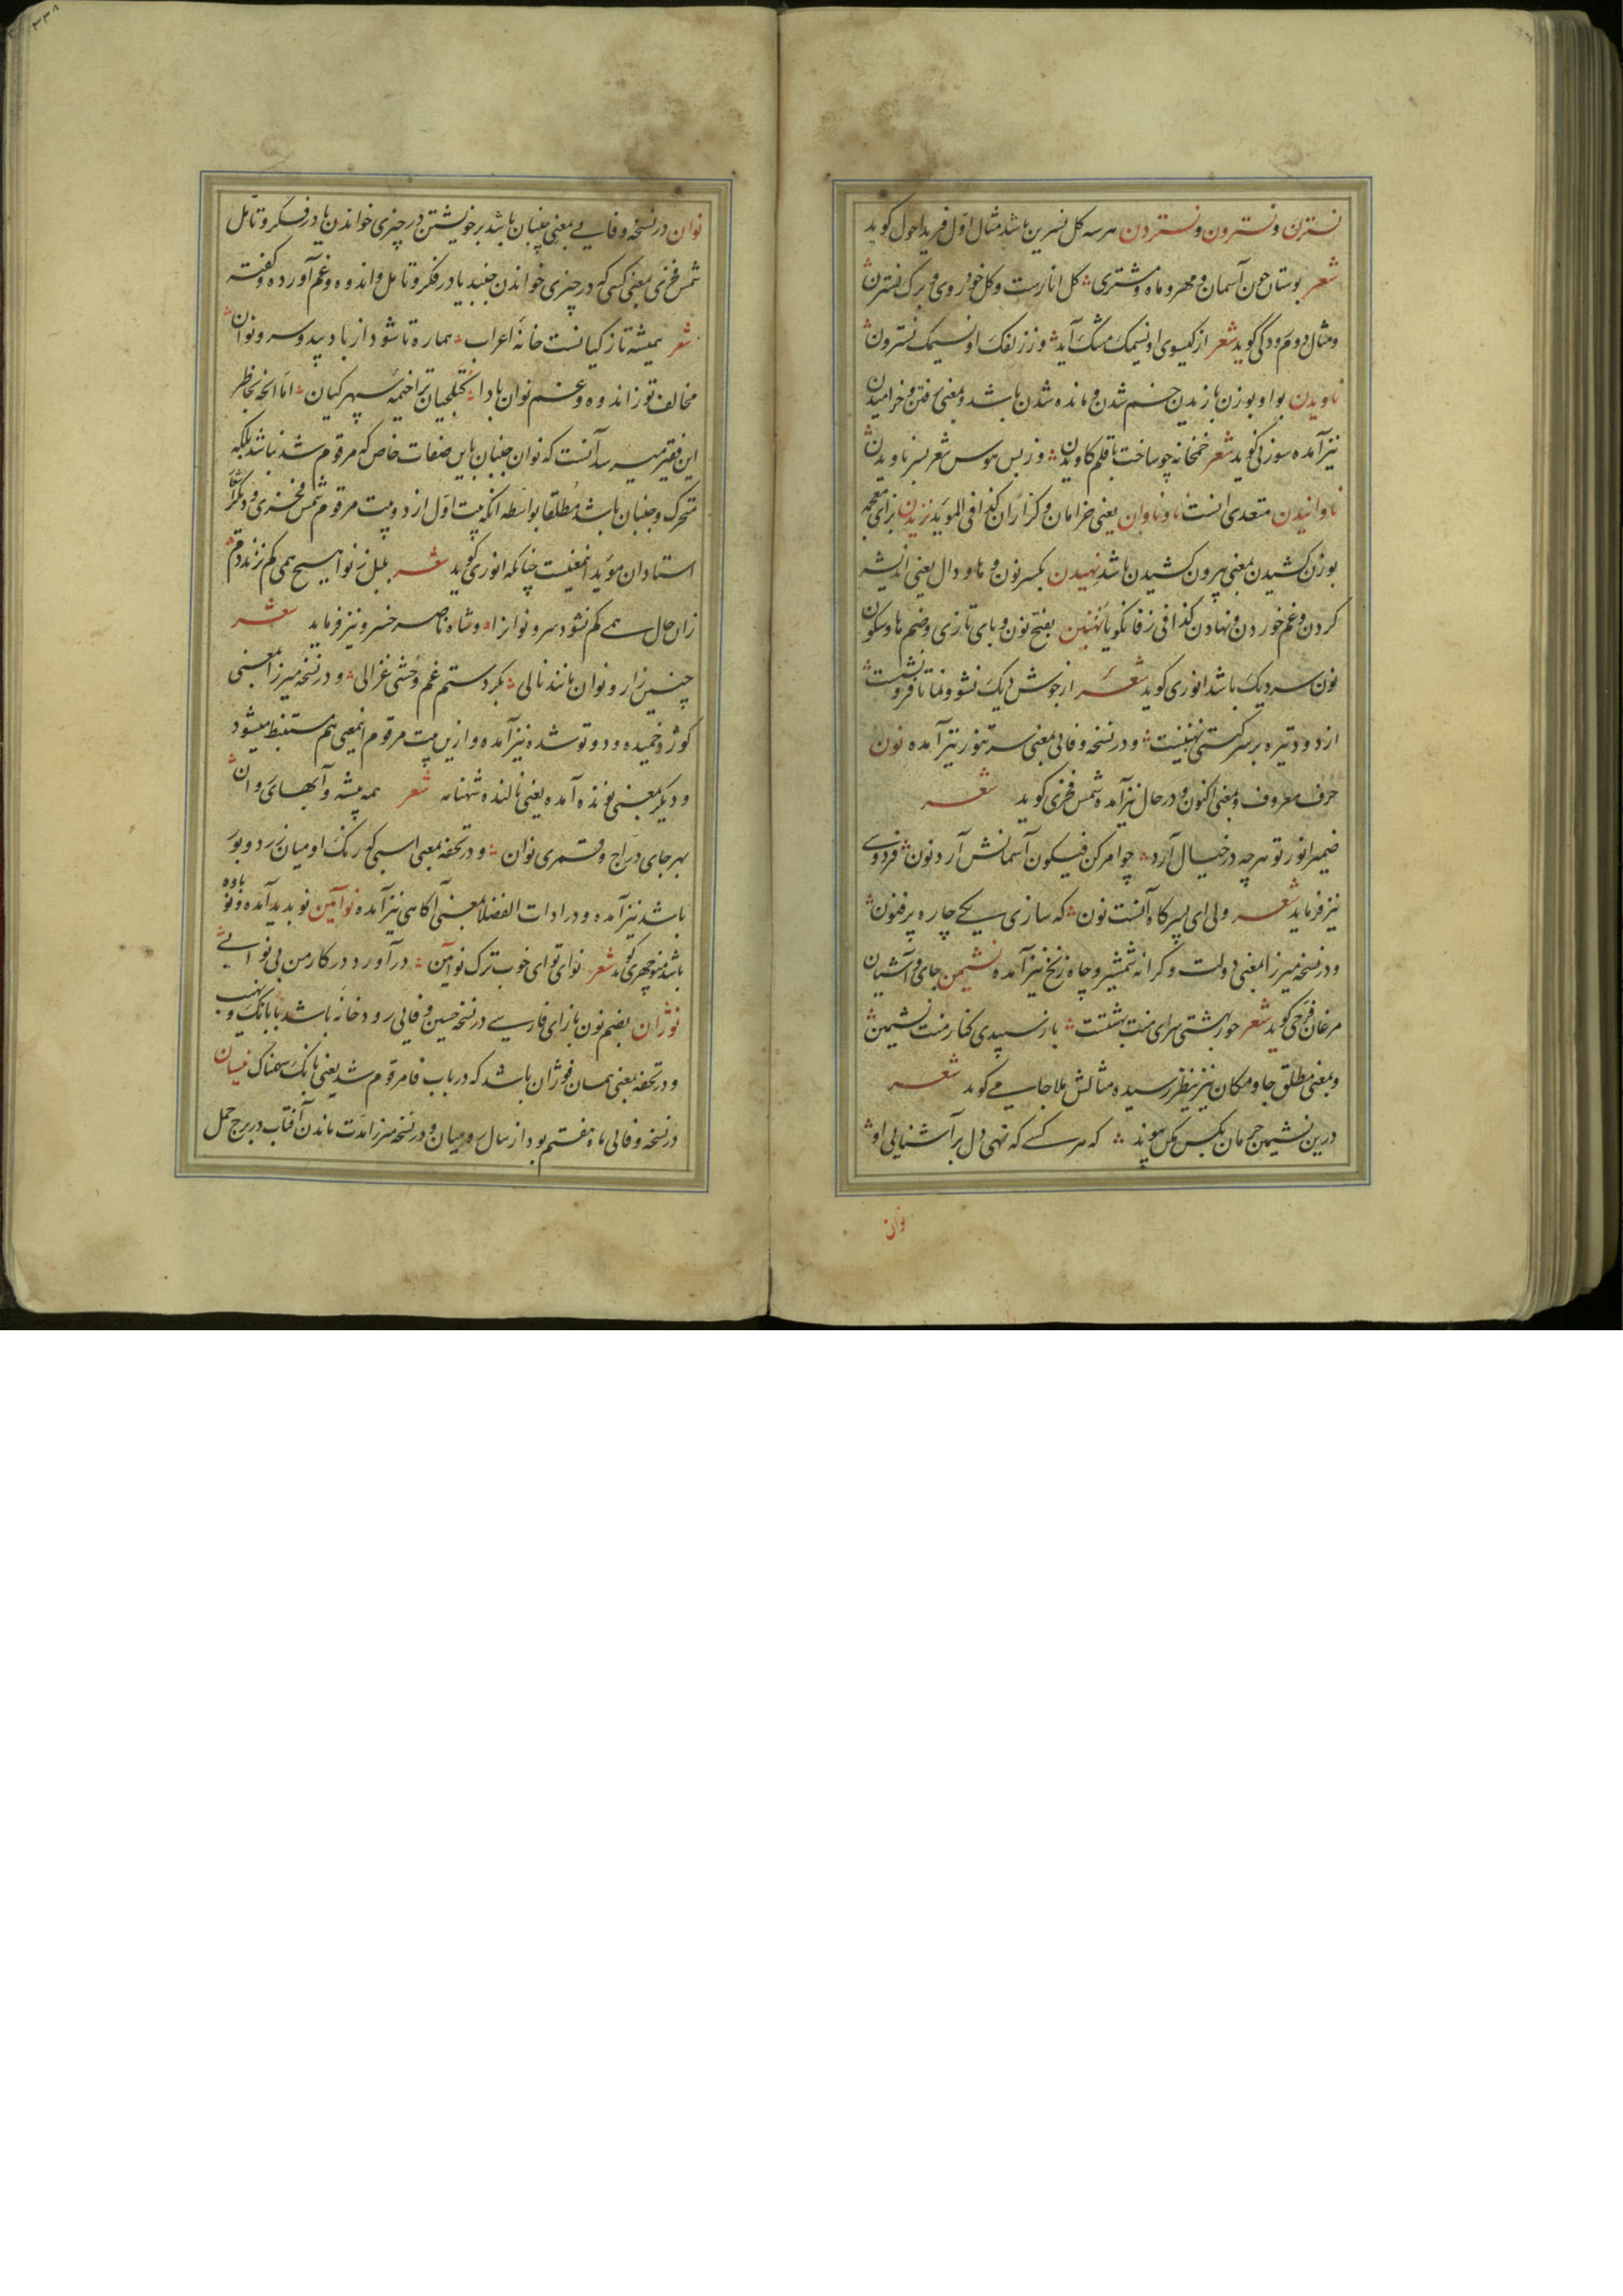 نسترن و نسترون و نستردن هر سه کل نسرین باشد مثال اول فرید احول کوید
شعر بوستان چون آسمان و مهر و ماه و مشتری کل انارست و کل خود روی و برک نسترن
و مثال دوم رودکی کوید شعر از کیسوی او نسیمک مشک آید وز زلفک او نسیمک نسترون
ناویدن بواو بوزن بازیدن خم شدن و مانده شدن باشد و بمعنی رفتن و خرامیدن
نیز آمده سوزنی کوید شعر خمخانه چو ساخت با قلم کاویدن وز بس هوس شعر بسر ناویدن
ناوانیدن متعدی انست ناوناوان یعنی خرامان و کرازان کذا فی الموید نزیدن بزای معجمه
بوزن کشیدن بمعنی بیرون کشیدن باشد نهیدن بکسر نون و ها و دال یعنی اندیشه
کردن و غم خوردن و نهادن کذا فی زفانکویا نهنبن بفتح نون و بای تازی و ضم ها و سکون
نون سر دیک باشد انوری کوید شعر از جوش دیک نشو و نما تا فرو نشست
از دود تیره بر سر کستی نهنبنست و در نسخه وفائی بمعنی سر تنور نیز آمده نون
حرف معروف و بمعنی اکنون و در حال نیز آمده شمس فخری کوید شعر
ضمیر انور تو هرچه در خیال آرد چو امر کن فیکون آسمانش آرد نون فردوسی
نیز فرماید شعر ولی ای پسر کاه آنست نون که سازی یکی چاره پر فنون
و در نسخه میرزا بمعنی دولت و کرانه شمشیر و چاه زنخ نیز آمده نشیمن جای و آشیان
مرغان فرخی کوید شعر حور بهشتی سرای منت بهشتست باز سپیدی کنار منت نشیمن
و بمعنی مطلق جا و مکان نیز بنظر رسیده مثالش ملا جامی کوید شعر
درین نشیمن حرمان بکس مکن پیوند که هر کسی که نهی دل بر آشنایی او
نوان
۳۳۸
نوان در نسخه وفایی بمعنی جنبان باشد بر خویشتن در چیزی خواندن یا در فکر و تأمل
شمس فخری بمعنی کسی که در چیزی خواندن جنبد یا در فکر و تامل و اندوه و غم آورده و کفته
شعر همیشه تا ز کیانست خانهٔ اعراب هماره تا شود از باد بید و سرو نوان
مخالف تو ز اندوه و غم نوان بادا تجلیان ترا خیمه سپهر کیان اما انچه بخاطر
این فقیر میرسد آنست که نوان جنبان باین صفات خاص که مرقوم شد نباشد بلکه
متحرک و جنبان باشد مطلقا بواسطه انکه بیت اول از دو بیت مرقوم شمس فخری و دیکر اشعار
استادان موید اینمعنیست چنانکه انوری کوید شعر بلبل ز نوا هیچ همی کم نزند دم
زان حال همی کم نشود سرو نوانرا و شاه ناصر خسرو نیز فرماید شعر
چنین زار و نوان مانند نالی بکردستم غم وحشی غزالی و در نسخه میرزا بمعنی
کوژ و خمیده و دوتو شده نیز آمده و ازین بیت مرقوم اینمعنی هم مستنبط میشود
و دیکر بمعنی نونده آمده یعنی نالنده شهنامه شعر همه بیشه و آبهای روان
بهر جای دراج و قمری نوان و در تحفه بمعنی اسبی که رنک او میان زرد و بور
باشد نیز آمده و در ادات الفضلا بمعنی آکاهی نیز آمده نوآیین نو بدید آمده و نو باوه
باشد منوچهری کوید شعر نوای تو ای خوب ترک نوآیین در آورد در کار من بی نوایی
نوژان بضم نون با زای فارسی در نسخه حسین وفایی رودخانه باشد با بانک و نهیب
و در تحفه بمعنی همان فوژان باشد که در باب فا مرقوم شد یعنی بانک سهمناک نیسان
در نسخه وفائی ماه هفتم بود از سال رومیان و در نسخه میرزا مدت ماندن آفتاب در برج حمل